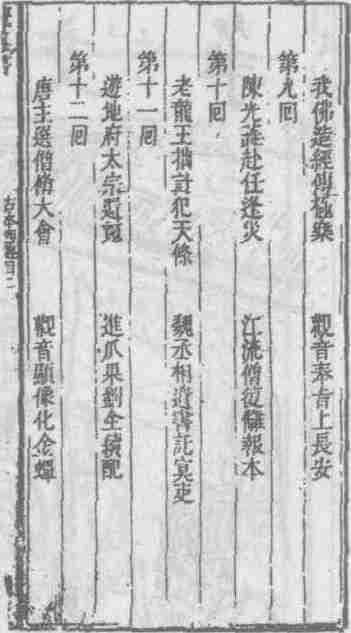 我佛造經傳極樂　觀音奉旨上長安
第九回
陳光蕊赴任逢災　江流僧復讎報本
第十回
老龍王拙計犯天條　魏丞相遺書託冥吏
第十一回
遊地府太宗還魂　進瓜果劉全續配
第十二回
唐主選僧修大會　觀音顯像化金蟬